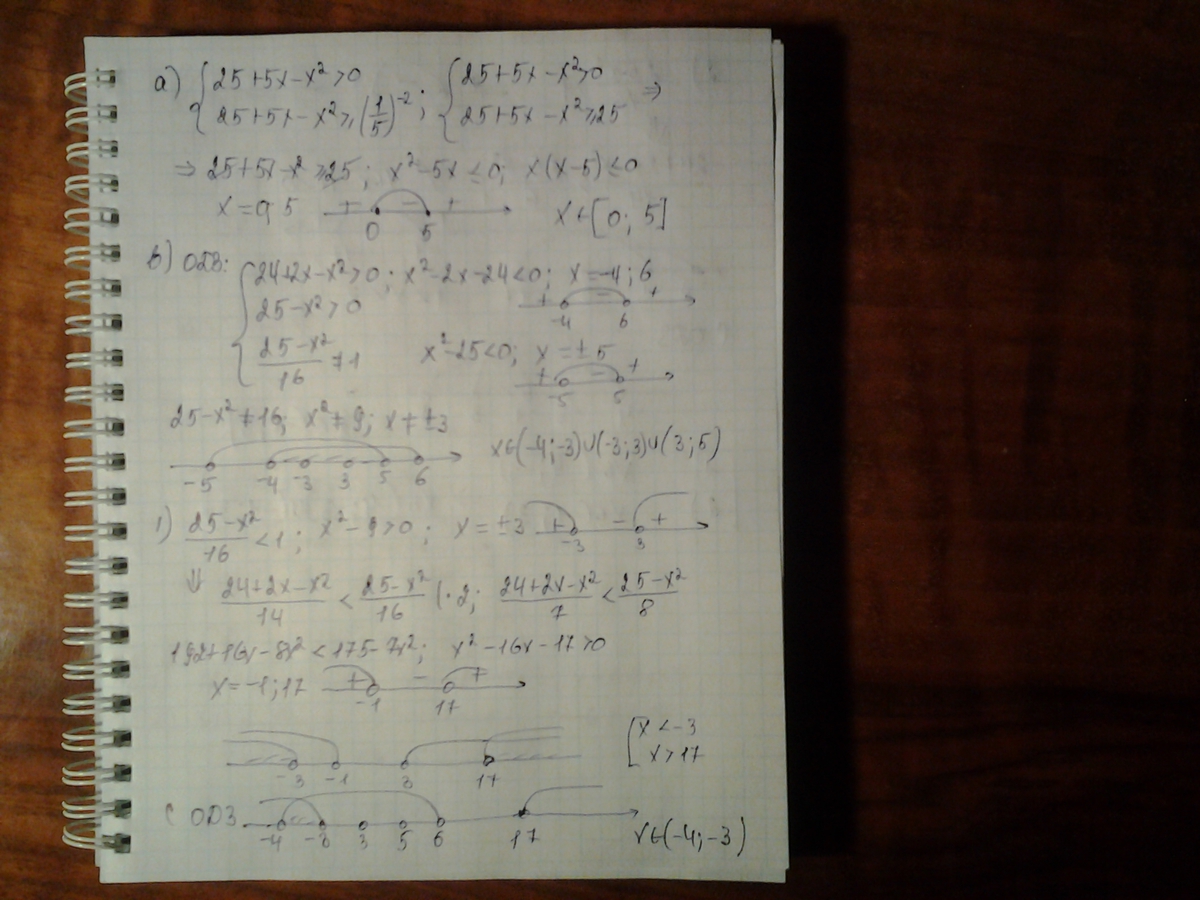 а) {25+5x-x²>0 ; {25+5x-x²>0 ⇒
25+5x-x²⩾(1/5)⁻² 25+5x-x²⩾25
⇒ 25+5x-x²⩾25; x²-5x≤0; x(x-5)≤0
x=0; 5 + - + 0 5 x∈[0; 5]
b) ОДЗ: {24+2x-x²>0; x²-2x-24<0; x=-4; 6
25-x²>0 + - + -4 6
(25-x²)/16 ≠1 x²-25<0; x=±5
+ - + -5 5
25-x²≠16; x²≠9; x≠±3
-5 -4 -3 3 5 6 x∈(-4;-3)∪(-3;3)∪(3;5)
1) (25-x²)/16 <1; x²-9>0; x=±3 + - + -3 3
⇓ (24+2x-x²)/14 < (25-x²)/16 |·2; (24+2x-x²)/7 < (25-x²)/8
192+16x-8x²<175-7x²; x²-16x-17>0
x=-1; 17 + - + -1 17
-3 -1 3 17 [x<-3
x>17
С ОДЗ -4 -3 3 5 6 17 x∈(-4;-3)